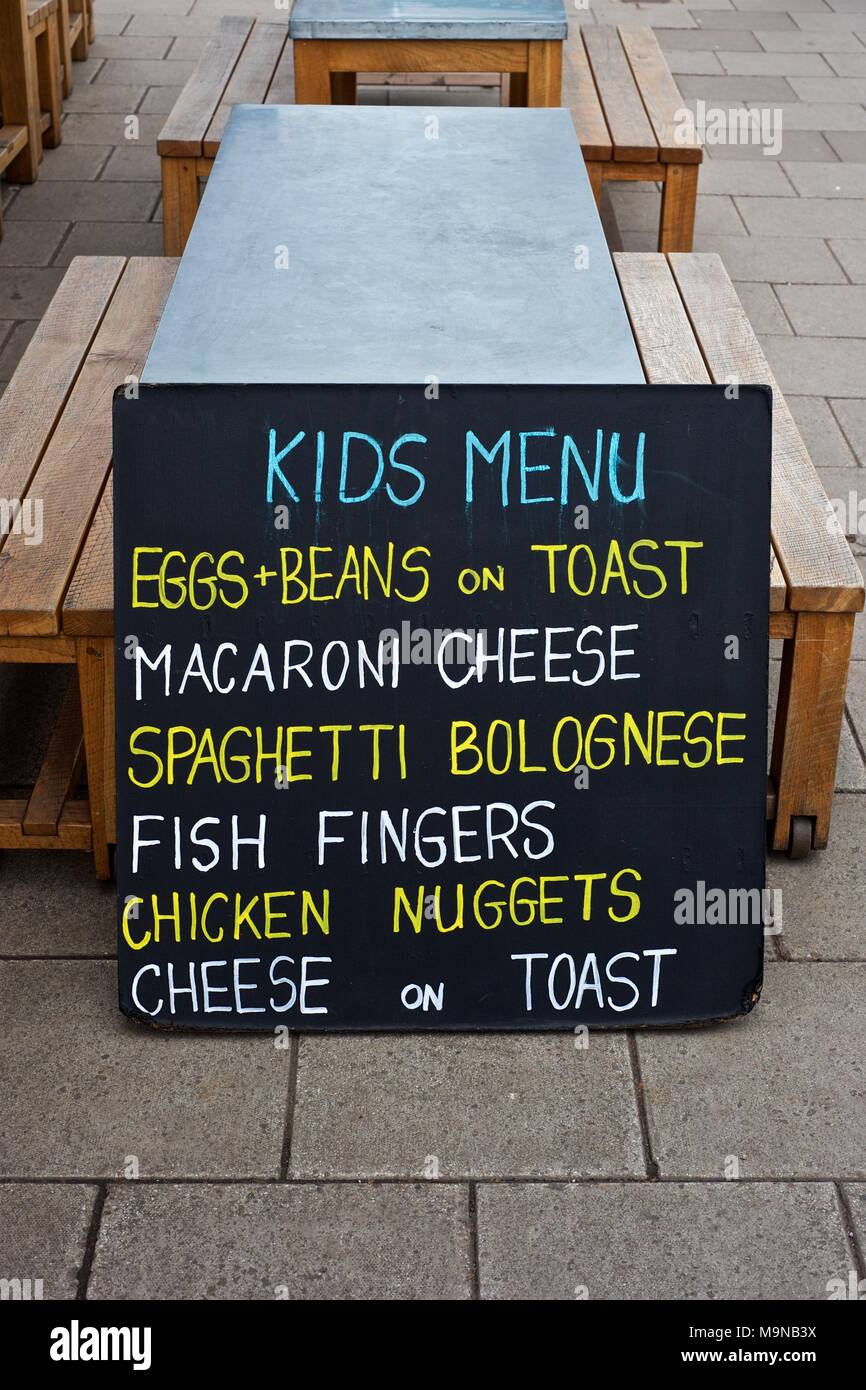 KIDS MENU
EGGS+BEANS ON TOAST
MACARONI CHEESE
SPAGHETTI BOLOGNESE
FISH FINGERS
CHICKEN NUGGETS
CHEESE ON TOAST
alamy
Image ID: M9NB3X
www.alamy.com